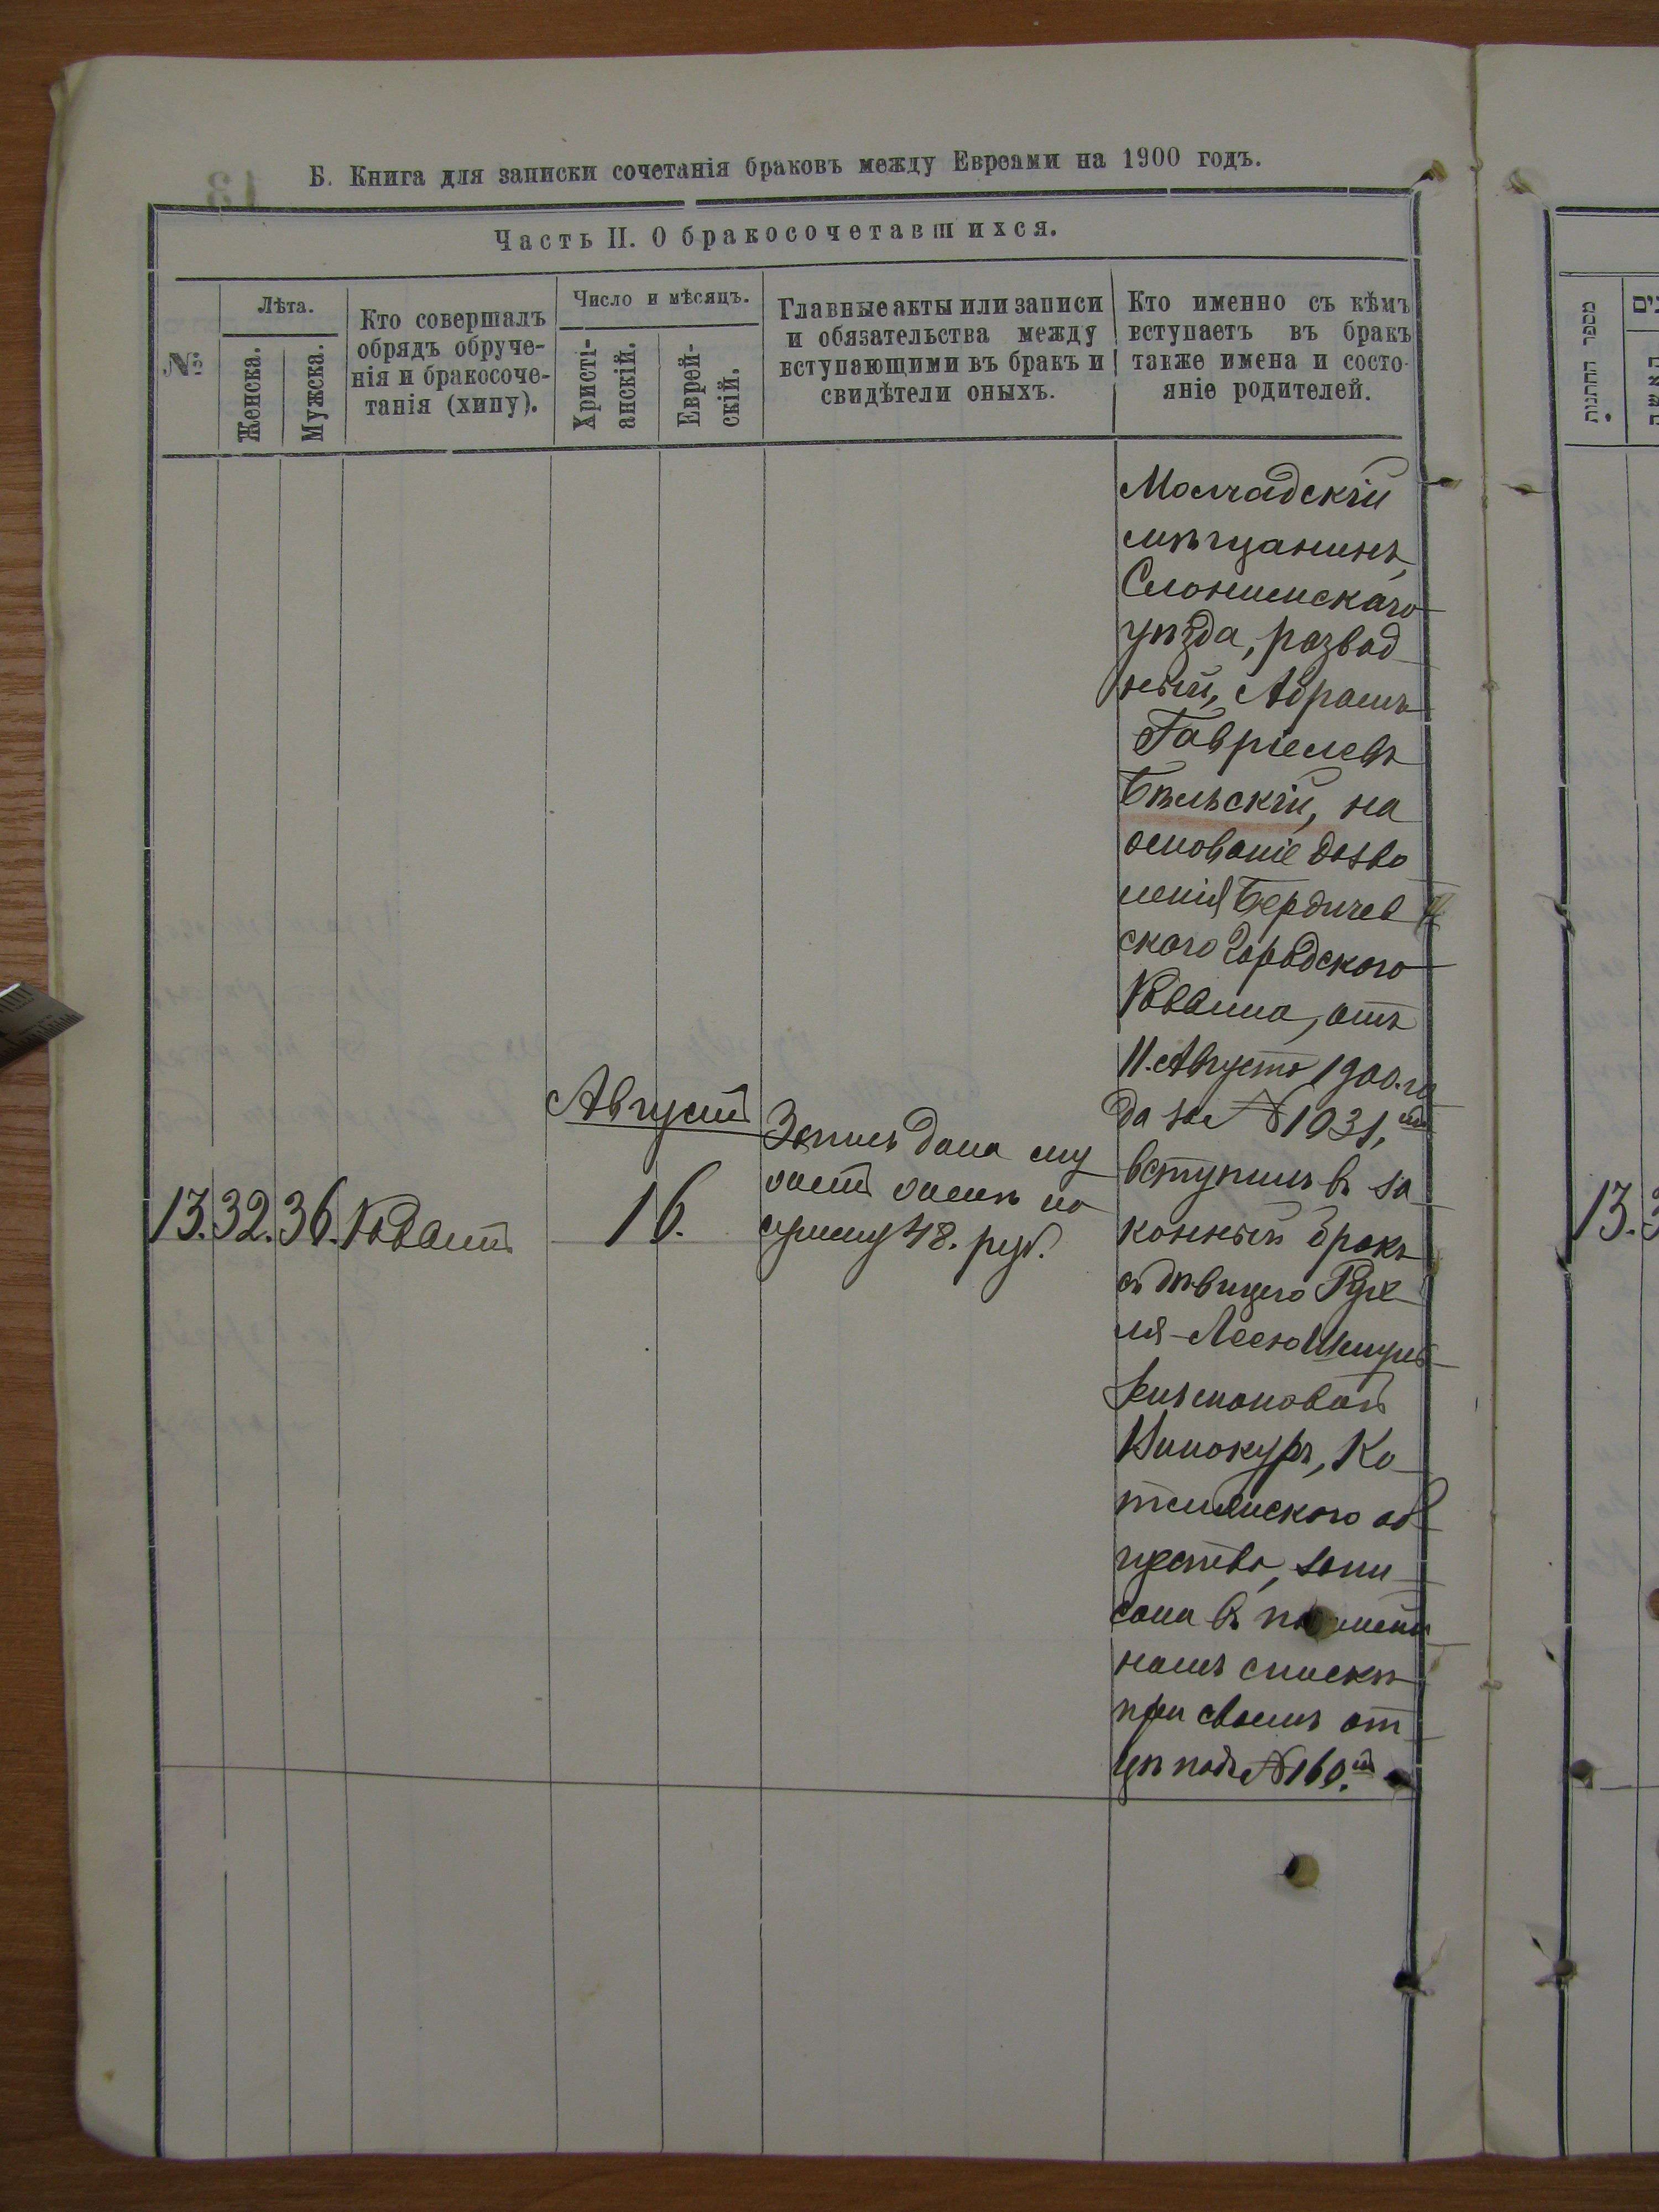 Б. Книга для записки сочетанія браковъ между Евреами на 1900 годъ.
Часть II. О бракосочетавшихся.
№
Лѣта.
Женска.
Мужска.
Кто совершалъ
обрядъ обруче-
нія и бракосоче-
танія (хипу).
Число и мѣсяцъ.
Христі-
анскій.
Еврей-
скій.
Главные акты или записи
и обязательства между
вступающими въ бракъ и
свидѣтели оныхъ.
Кто именно съ кѣмъ
вступаетъ въ бракъ
также имена и состо-
яніе родителей.
13.
32.
36.
Раввинъ
Августъ
16.
Запись дана му
жемъ женѣ на
сумму 48. руб.
Молчадскій
мѣщанинъ,
Слонимскаго
уѣзда, развод
ный, Абрамъ
Гавріелевъ
Бѣльскій, на
основаніе дозво
ленія Бердичев
скаго Городского
Раввина, отъ
11. Августа 1900. го
да за № 1031,
вступилъ въ за
конный бракъ
съ дѣвицею Рух
ля-Леею Шмуль
Зисмановой
Винокуръ, Ко
тельнскаго об
щества, запи
сана въ
номъ спискѣ
при своемъ от
цѣ подъ № 160.
מספר החתונות
האשה
13.